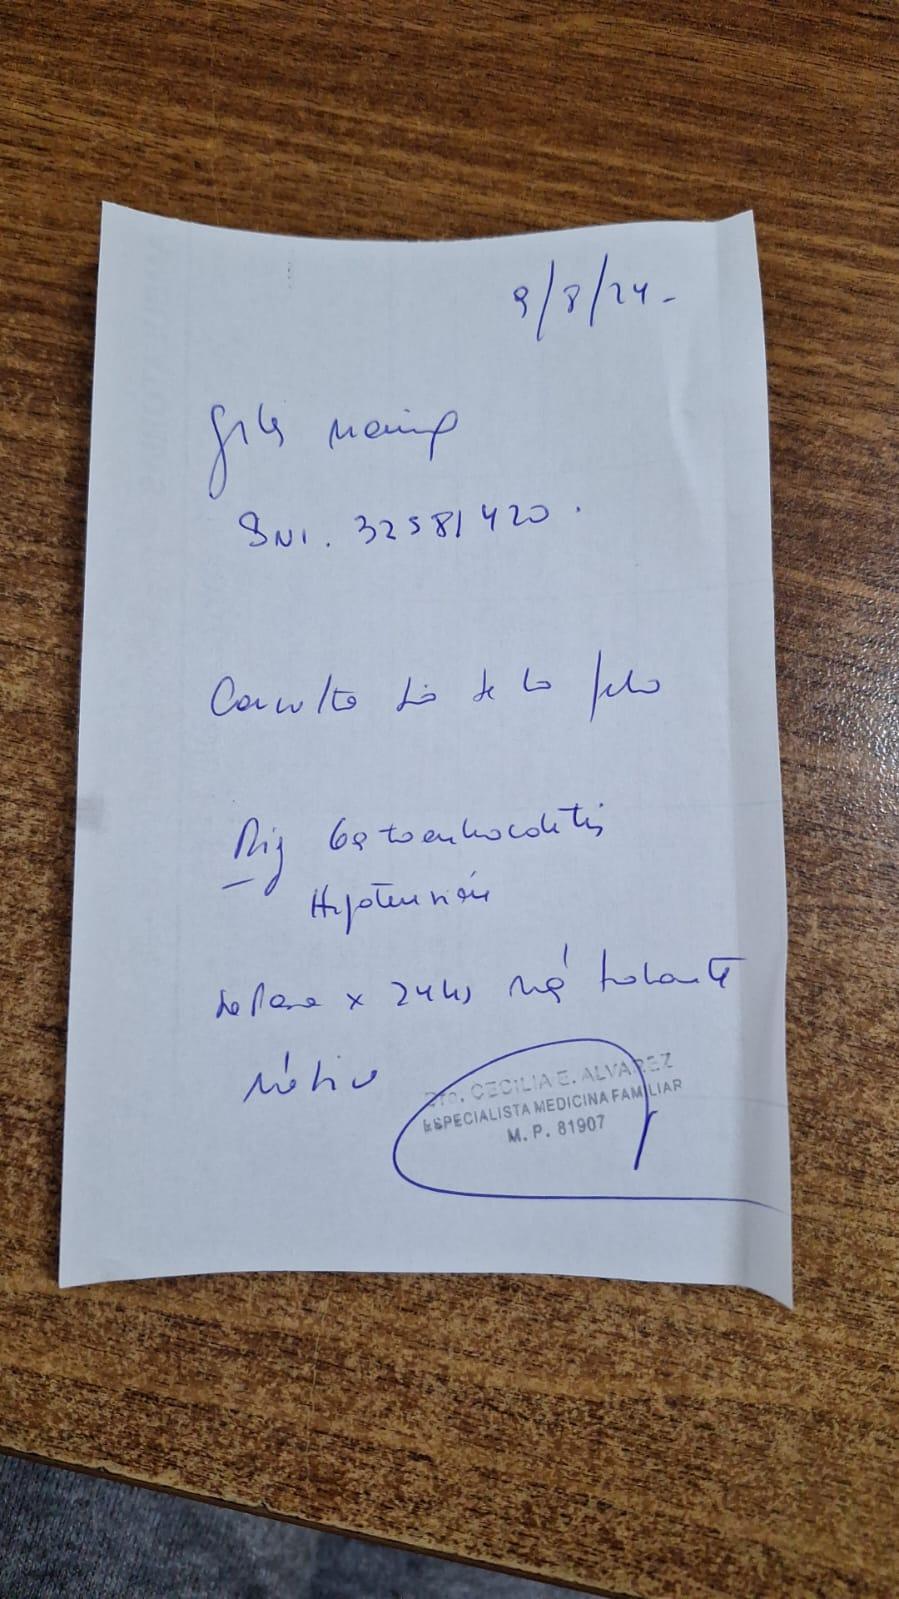 9/8/24-
DNI. 32581420.
Consulta día de la fecha
Dig Gastroenterocolitis
Hipotensión
Reposo x 24hs
médico
Dra. CECILIA E. ALVAREZ
ESPECIALISTA MEDICINA FAMILIAR
M. P. 81907